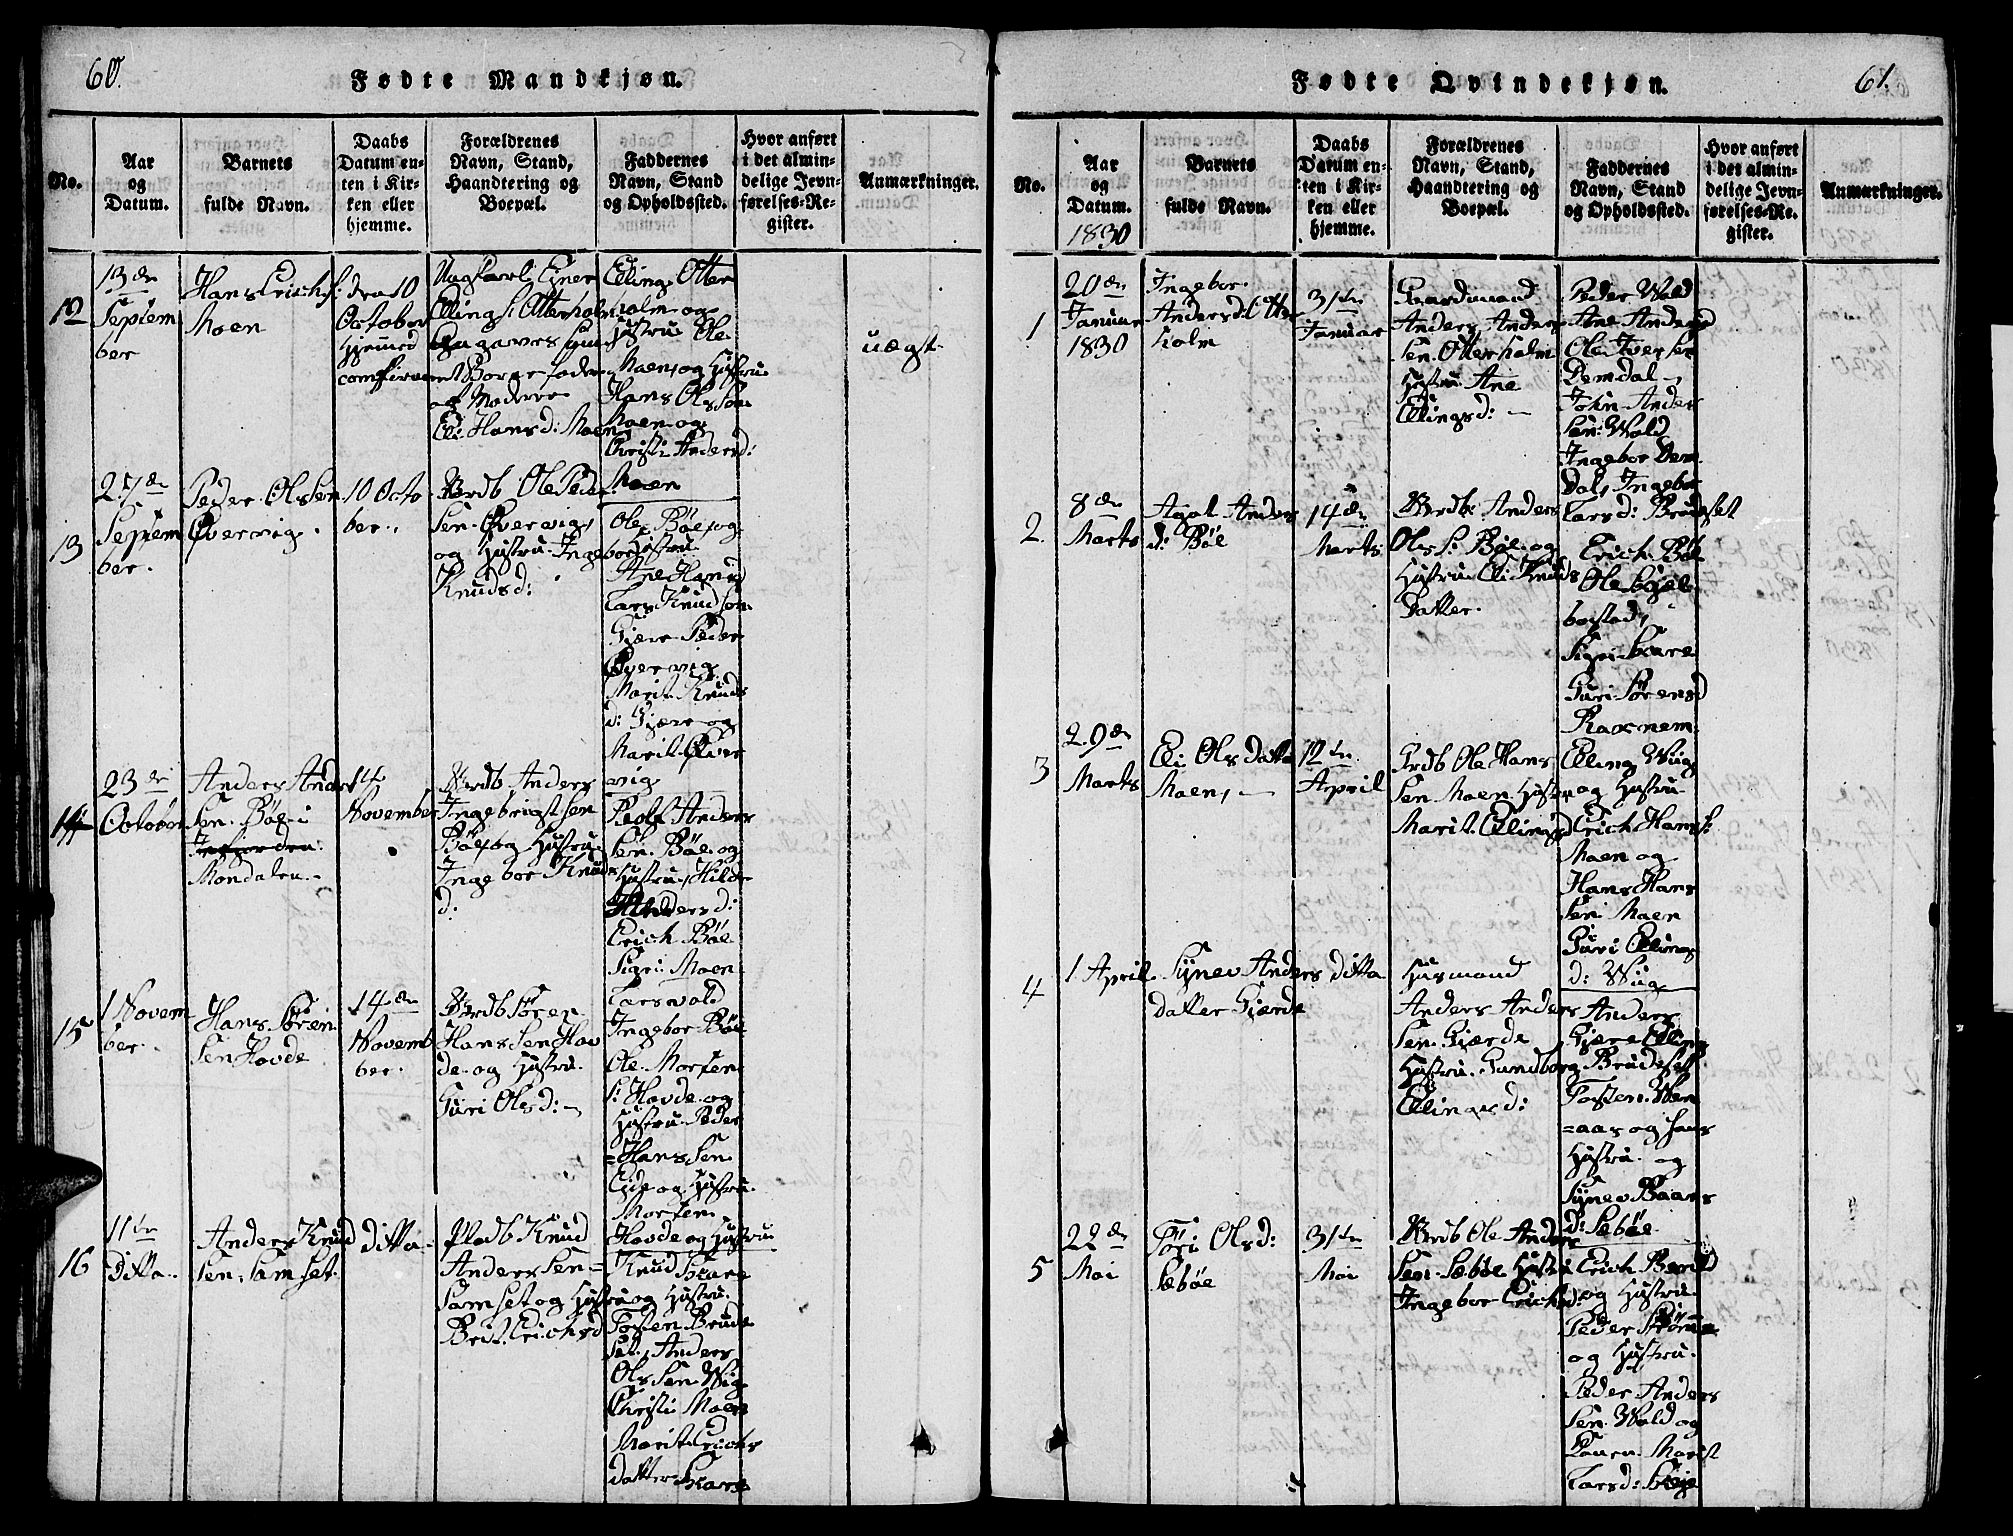 60.
Fødte Mandkjøn.
No.
Aar
og
Datum.
Barnets
fulde Navn.
Daabs
Datum en-
ten i Kir-
ken eller
hjemme.
Forældrenes
Navn, Stand,
Haandtering og
Boepæl.
Faddernes
Navn, Stand
og Opholdssted.
Hvor anført
i det almin-
delige Jevn-
førelses-Re-
gister.
Anmærkninger.
12
13de
Septem
ber
Hans Erichs:
Moen
10
October
Hjemed
Elling S: Otterholm
og Moderen
Eli Hansd: Moen
Elling Otter
holm og
Hustru Ole
Moen, og Hustru
Hans Olssøn
Moen og
Christi Andersd:
Moen
uægt
13
27de
Septem
ber.
Peder Olssen
Øvervig.
10 Octo
ber.
Brdb Ole Peder
sen Øvervig,
og Hustru Ingebor
Knudsd:
Ole Böe, og
Hustru
Ane Hansd
Lars Knudsøn
Gjære Peder
Øvervig
Marit Knuds
d: Gjære og
Marit Øver
vig
14
23de
October
Anders Anders
sen Böe i
Mondalen.
14
November
Brdb Anders
Ingebrigtsen
Böe, og Hustru
Ingebor Knuds
d:
Anders
sen Böe og
Hustru, Hilde
Andersd:
Erich Böe
Sigri Moen
Lars Vold
Ingebor Böe
15
1 Novem
ber.
Hans Sören
sen Hovde
14de
Novem
ber.
Brdb Sören
Hanssen Hov
de og Hustru
Guri Olsd:
Ole Morten
s: Hovde og
Hustru Peder
=Hanssen
Eide og Hustru
Morten
Hovde og Hustru
16
11te
Ditto.
Anders Knud
sen Samset.
ditto
Pladb Knud
Anderssen=
Samset og Hustru
Brit Erichsd
Knud Skare
og Hustru
Tosten Brude
set, Anders
Olssen Wiig
Christi Moen
Marit Erichs
datter Skare
61.
Fødte Qvindekjøn.
No.
Aar
og
Datum.
1830
Barnets
fulde Navn.
Daabs
Datum en-
ten i Kir-
ken eller
hjemme.
Forældrenes
Navn, Stand,
Haandtering og
Boepæl.
Faddernes
Navn, Stand
og Opholdssted.
Hvor anført
i det almin-
delige Jevn-
førelses-Re-
gister.
Anmærkninger.
1
20de
Januar
1830
Ingebor
Andersd: Otter
holm
31te
Januar
Gaardmand
Anders Anders
sen Otterholm
Hustru Ane
Ellingsd:
Peder Wold
Ane Andersd
Ole Iversen
Demdal,
John Anders
sen Wold
Ingebor Dem
dal, Ingebor
Larsd: Brudeset
2.
8de
Marts
Agat Anders
d: Böe
14de
Marts
Brdb: Anders
Ols S: Böe og
Hustru Eli Knuds
datter.
Erich Böe
Ole Bögel
bostad,
Sigri Skare
Guri Sörensd
Ravnem
3
29de
Marts
Eli Olsdatter
Moen,
12te
April
Grdb Ole Hans
sen Moen Hustru
Marit Ellingsd
Elling Wiig
og Hustru
Erich Hans:
Moen og
Hans Hans
sen Moen
Guri Ellings
d: Wiig
4
1 April
Synev Anders
datter Gjerde
ditto
Husmand
Anders Anders
sen Gjærde
Hustru Gundborg
Ellingsd:
Anders
Gjære Elling
Brudeset
Tosten Wen
=aas og hans
Hustru og
Synev Baars
d: Sebøe
5
22de
Mai
Töri Olsd:
Sæböe
31te
Mai
Brdb Ole Anders
sen Sæböe Hustru
Ingebor Erichsd:
Erich Berild
og Hustru
Peder Strømme
og Hustru.
Peder Anders
sen Wold og
Konen Marit
Larsd: